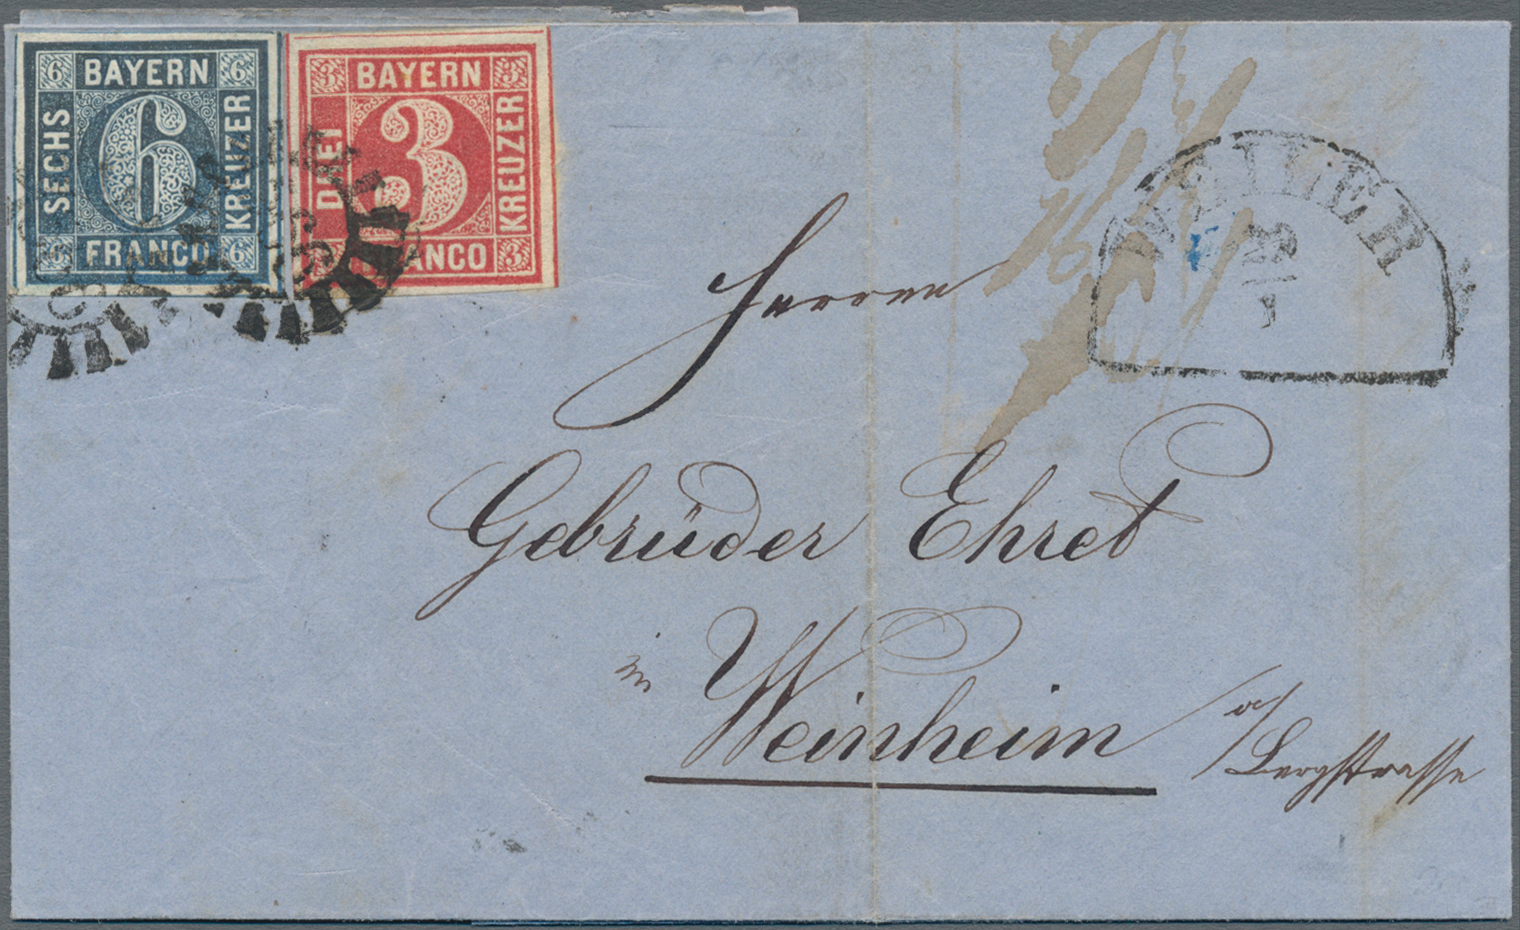 6 BAYERN 6
SECHS
6
KREUZER
6 FRANCO 6
3 BAYERN 3
DREI
3
KREUZER
FRANCO 3
WEILER
Herren
Gebrüder Ehret
in Weinheim
a/ Bergstrasse